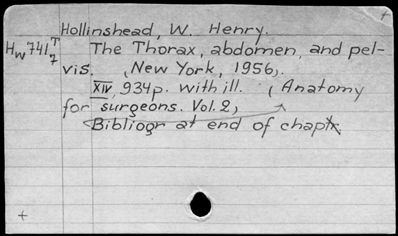 Hollinshead, W. Henry.
Hw741T7 The Thorax, abdomen, and pel-
vis. (New York, 1956).
XIV, 934p. with ill. (Anatomy
for surgeons. Vol.2)
Bibliogr at end of chaptr